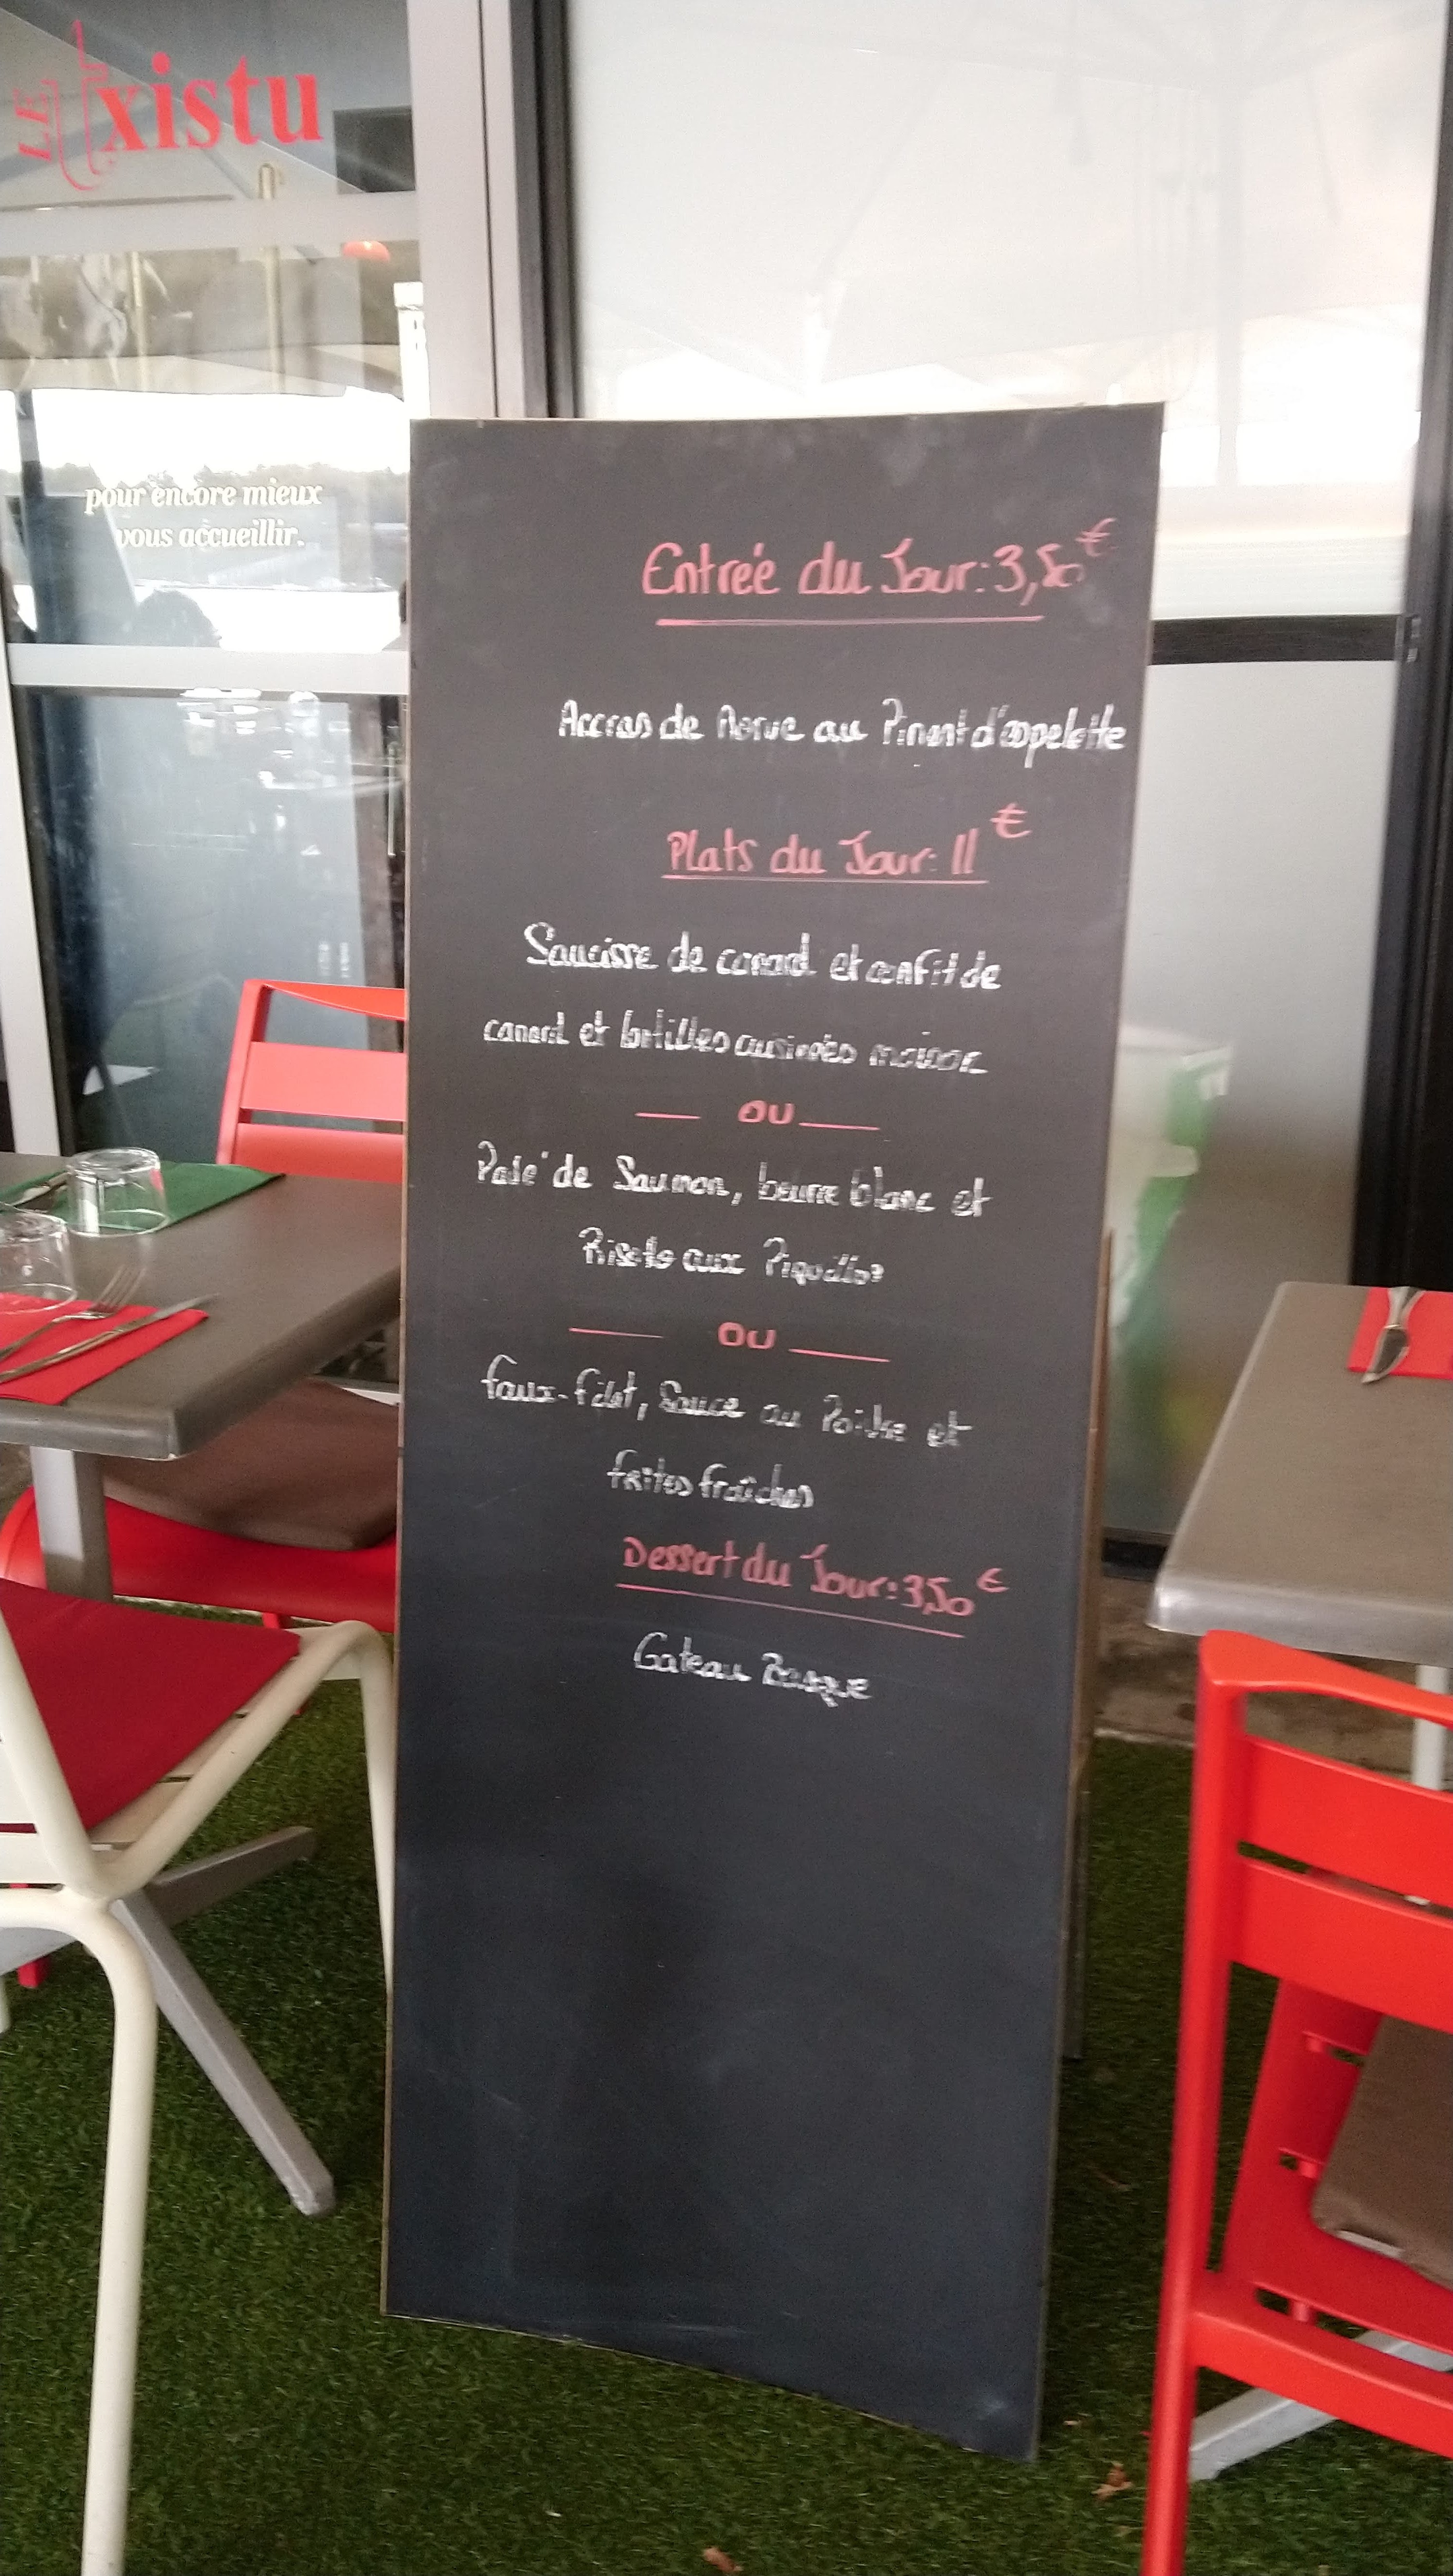 LE Txistu
pour encore mieux
vous accueillir.
Entrée du Jour: 3,50€
Accras de Morue au Piment d'espelette
Plats du Jour: 11€
Saucisse de canard et confit de
canard et lentilles cuisinées maison
— OU —
Pavé de Saumon, beurre blanc et
Risoto aux Piquillos
— OU —
Faux-filet, Sauce au Poivre et
frites fraîches
Dessert du Jour: 3,50€
Gateau Basque